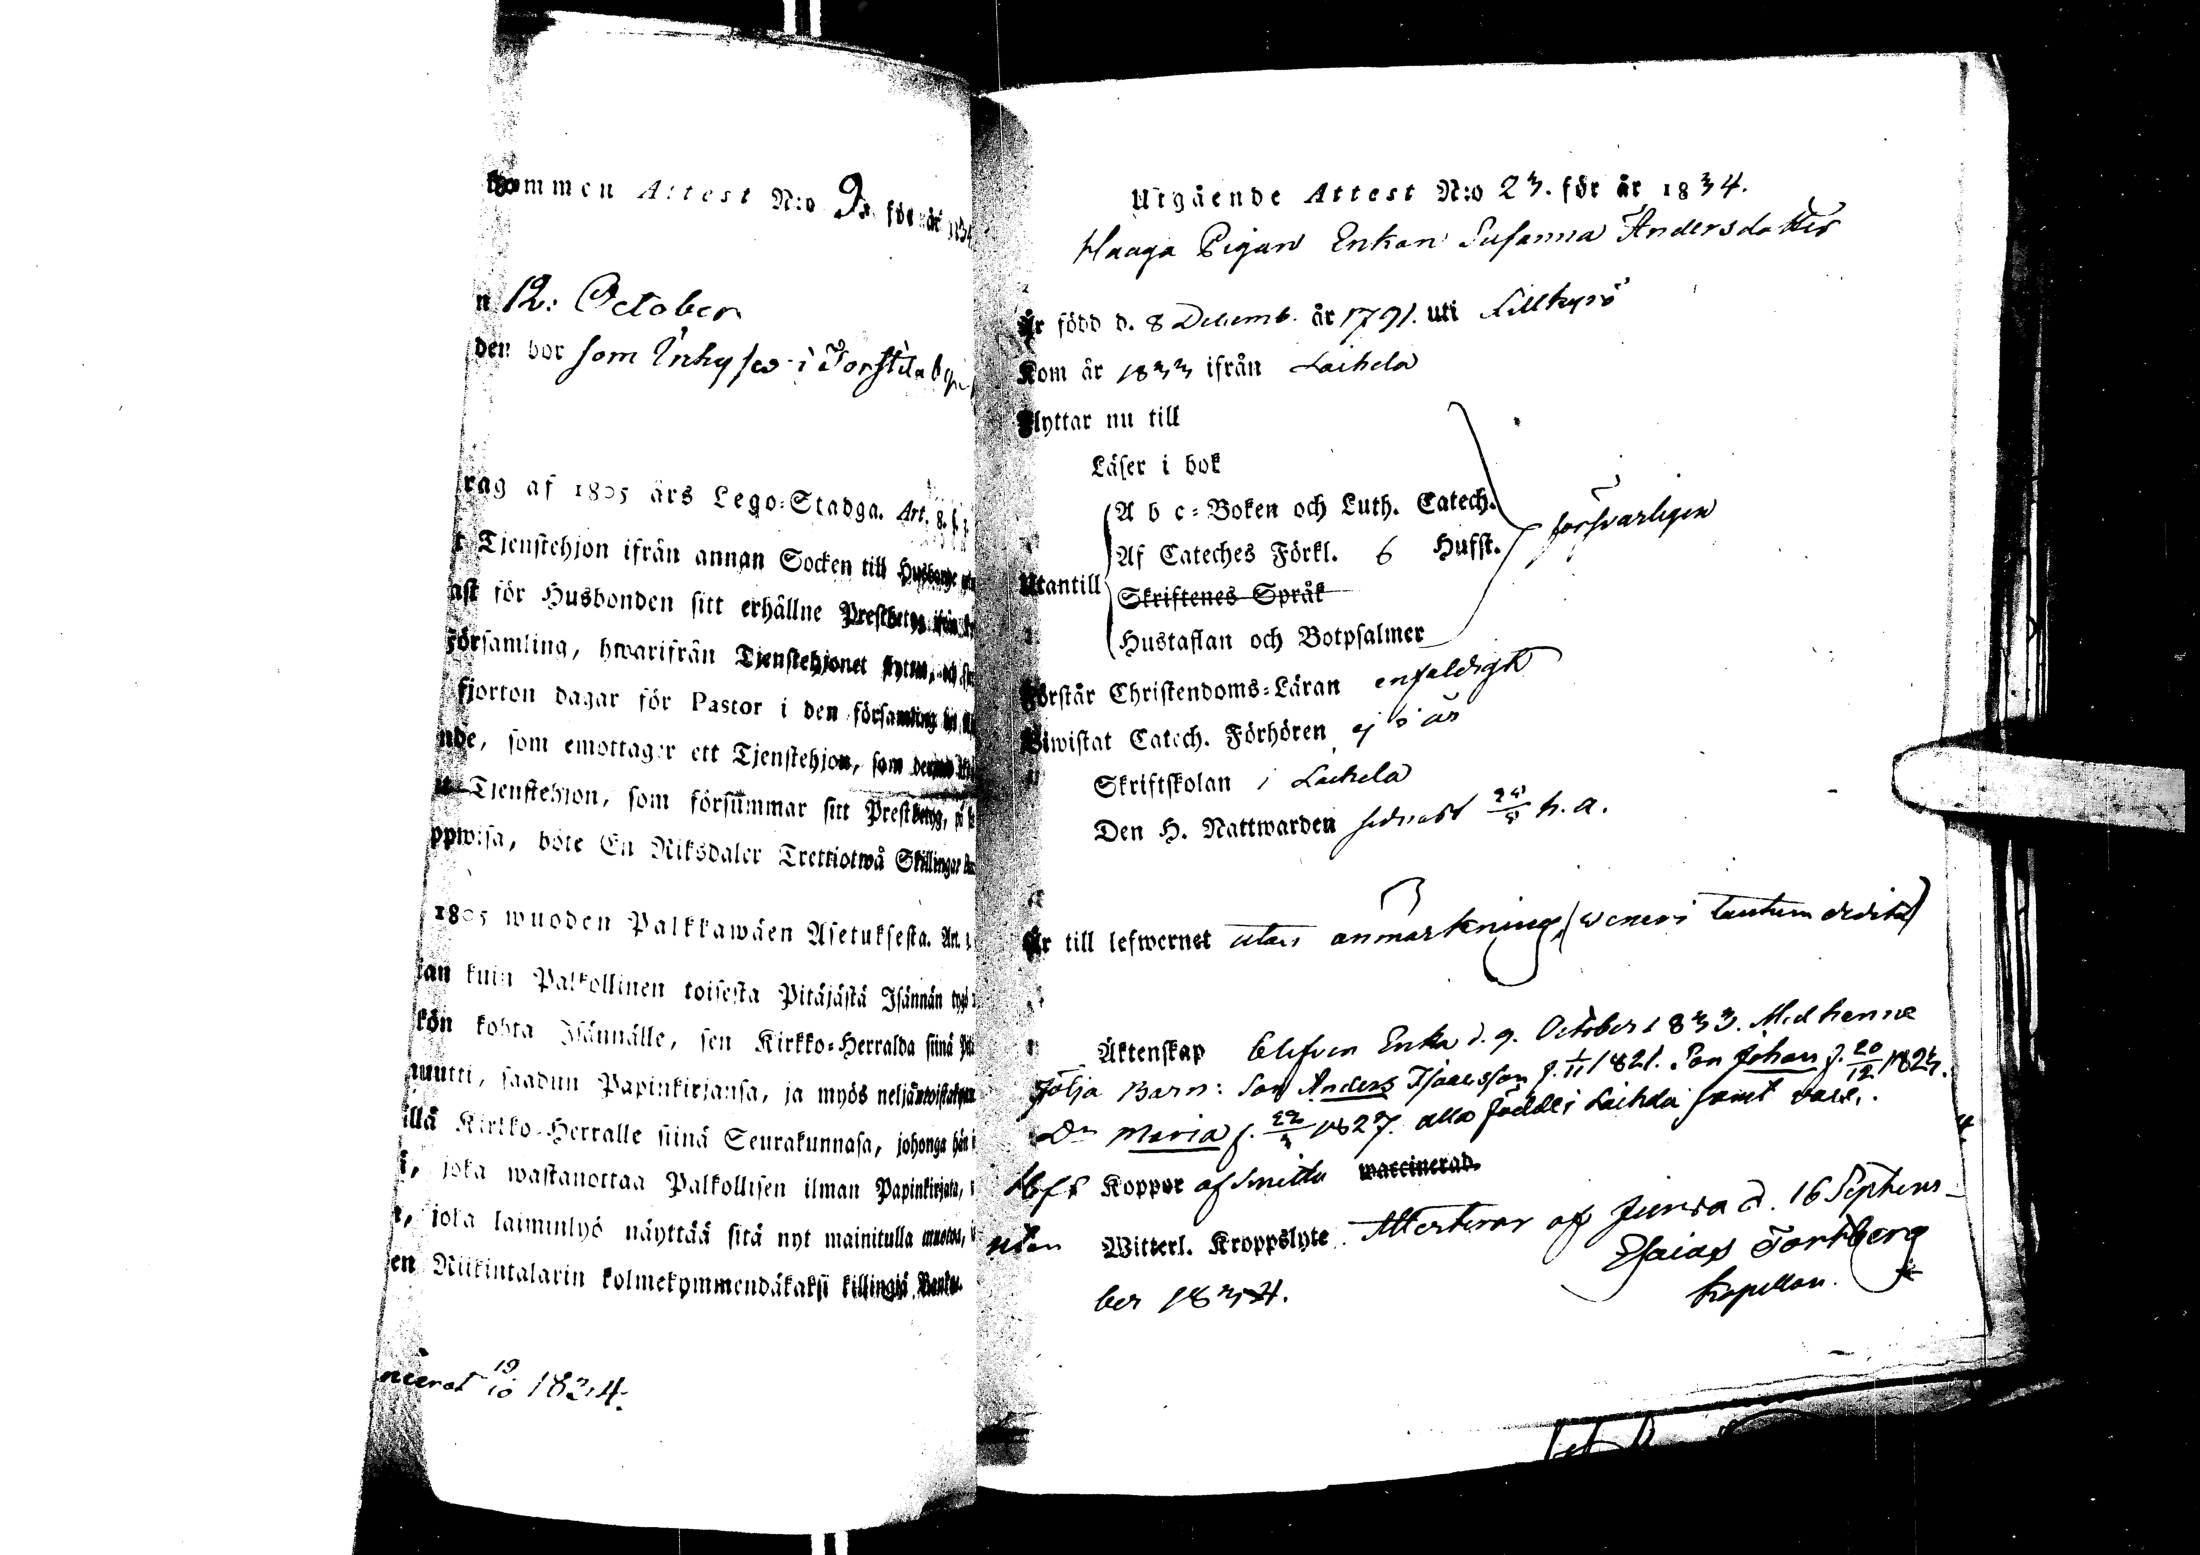 kommen Attest N:o 93. för år 1834
n 12: October
den bor som Inhyses i Torstila by
rag af 1805 års Lego-Stadga. Art. 8. §. 3.
t Tjenstehjon ifrån annan Socken till Husbonde
ast för Husbonden sitt erhållne Prestbetyg ifrån
Församling, hwarifrån Tjenstehjonet flyttat, och
fjorton dagar för Pastor i den församling
nde, som emottager ett Tjenstehjon, som
Tjenstehjon, som försummar sitt Prestbetyg, på
ppwisa, böte En Riksdaler Trettiotwå Skillingar
1805 wuoden Palkkawäen Asetuksesta. Art.
jan kuin Palkollinen toisesta Pitäjästä Isännän tygö
kön kohta Isännälle, sen Kirkko-Herralda siinä
muutti, saadun Papinkirjansa, ja myös neljäntoistakymmen
illä Kirkko-Herralle siinä Seurakunnasa, johonga hän
i, joka wastanottaa Palkollisen ilman Papinkirjata,
, joka laiminlyö näyttää sitä nyt mainitulla muotoa,
en Riikintalarin kolmekymmendäkaksi killingiä Banko.
19/10 1834.
Utgående Attest N:o 23. för år 1834.
Haaga Pigan Enkan Susanna Andersdotter
Är född d. 8 Decemb. år 1791. uti Lillkyrö
Kom år 1833 ifrån Laihela
Flyttar nu till
Läser i bok
A b c-Boken och Luth. Catech.
Af Cateches Förkl. 6 Hufst. försvarligen
Utantill
Skriftenes Språk
Hustaflan och Botpsalmer
Förstår Christendoms-Läran enfaldigt
Biwistat Catech. Förhören ej i år
Skriftskolan i Laihela
Den H. Nattwarden sednast h. a.
Är till lefwernet utan anmärkning, (veneri tantum dedita)
Äktenskap blifven Enka d. 9. October 1833. Med henne
följa Barn: Son Anders Isaacsson f. 1/11 1821. Son Johan f. 20/12 1823.
Dr Maria f. 22/3 1827. alla födde i Laihela samt vacc.
Hafft Koppor af Smitta waccinerad.
utan Witterl. Kroppslyte. Attesterar af Jurva d. 16 Septem-
ber 1834. Esaias Fortberg
Kapellan.